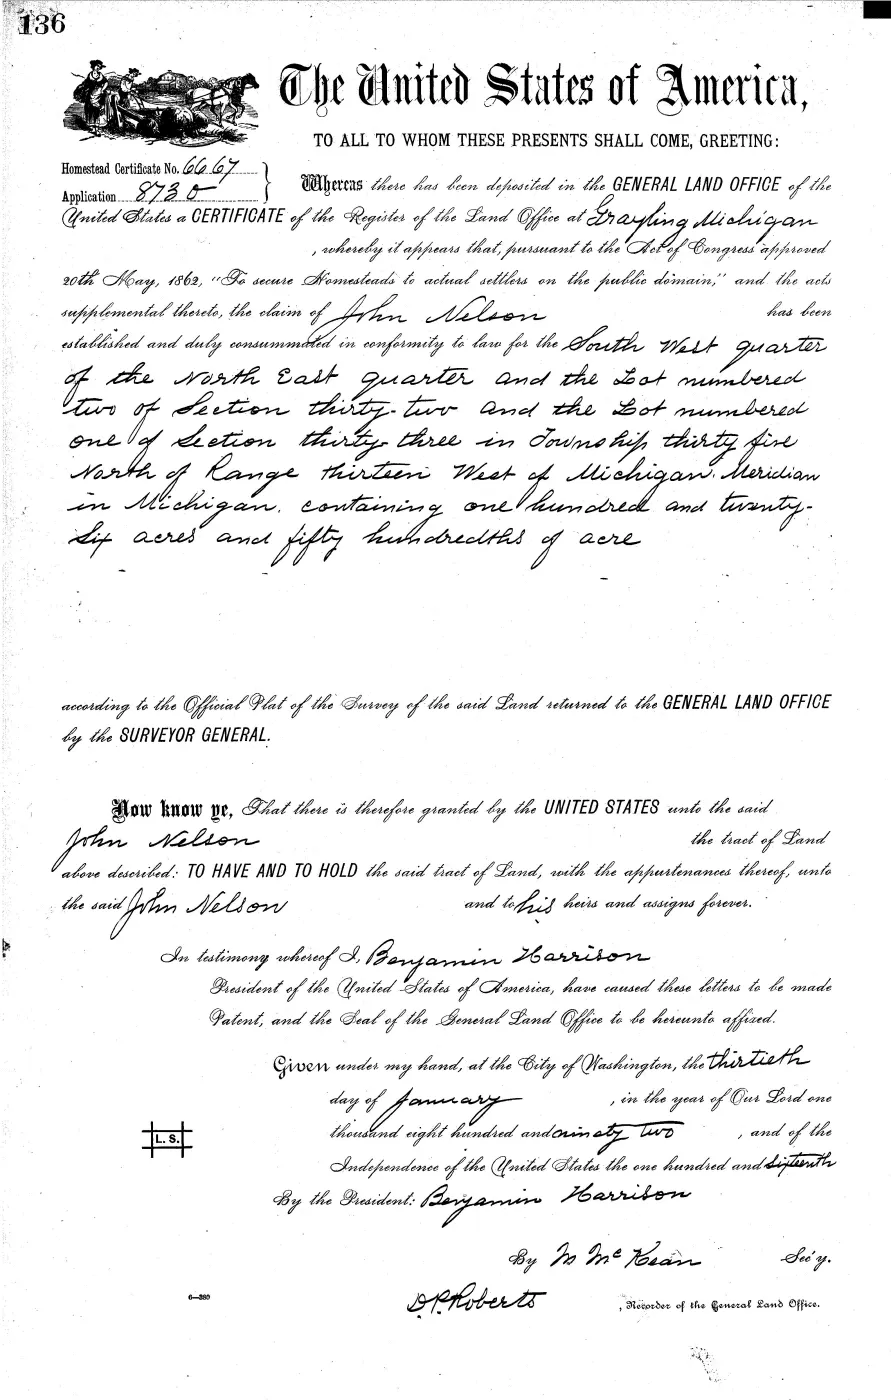 136
The United States of America,
TO ALL TO WHOM THESE PRESENTS SHALL COME, GREETING:
Homestead Certificate No. 6667
Application 8730
Whereas there has been deposited in the GENERAL LAND OFFICE of the
United States a CERTIFICATE of the Register of the Land Office at Grayling Michigan
, whereby it appears that, pursuant to the Act of Congress approved
20th May, 1862, "To secure Homesteads to actual settlers on the public domain," and the acts
supplemental thereto, the claim of John Nelson has been
established and duly consummated in conformity to law for the South West quarter
of the North East quarter and the Lot numbered
two of Section thirty-two and the Lot numbered
one of Section thirty-three in Township thirty five
North of Range thirteen West of Michigan Meridian
in Michigan. containing one hundred and twenty-
six acres and fifty hundredths of acre
according to the Official Plat of the Survey of the said Land returned to the GENERAL LAND OFFICE
by the SURVEYOR GENERAL.
Now know ye, That there is therefore granted by the UNITED STATES unto the said
John Nelson the tract of Land
above described: TO HAVE AND TO HOLD the said tract of Land, with the appurtenances thereof, unto
the said John Nelson and to his heirs and assigns forever.
In testimony whereof I, Benjamin Harrison
President of the United States of America, have caused these letters to be made
Patent, and the Seal of the General Land Office to be hereunto affixed.
Given under my hand, at the City of Washington, the thirtieth
day of January , in the year of Our Lord one
thousand eight hundred and ninety two , and of the
Independence of the United States the one hundred and sixteenth
L. S.
By the President: Benjamin Harrison
By M McKean Sec'y.
6—380
D.P. Roberts , Recorder of the General Land Office.